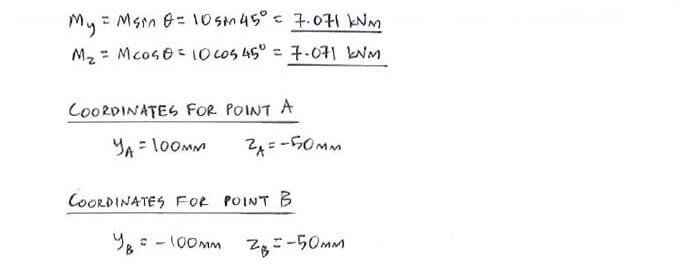 My = M sin θ = 10 sin 45° = 7.071 kNm
Mz = M cos θ = 10 cos 45° = 7.071 kNm
COORDINATES FOR POINT A
yA = 100mm zA = -50mm
COORDINATES FOR POINT B
yB = -100mm zB = -50mm